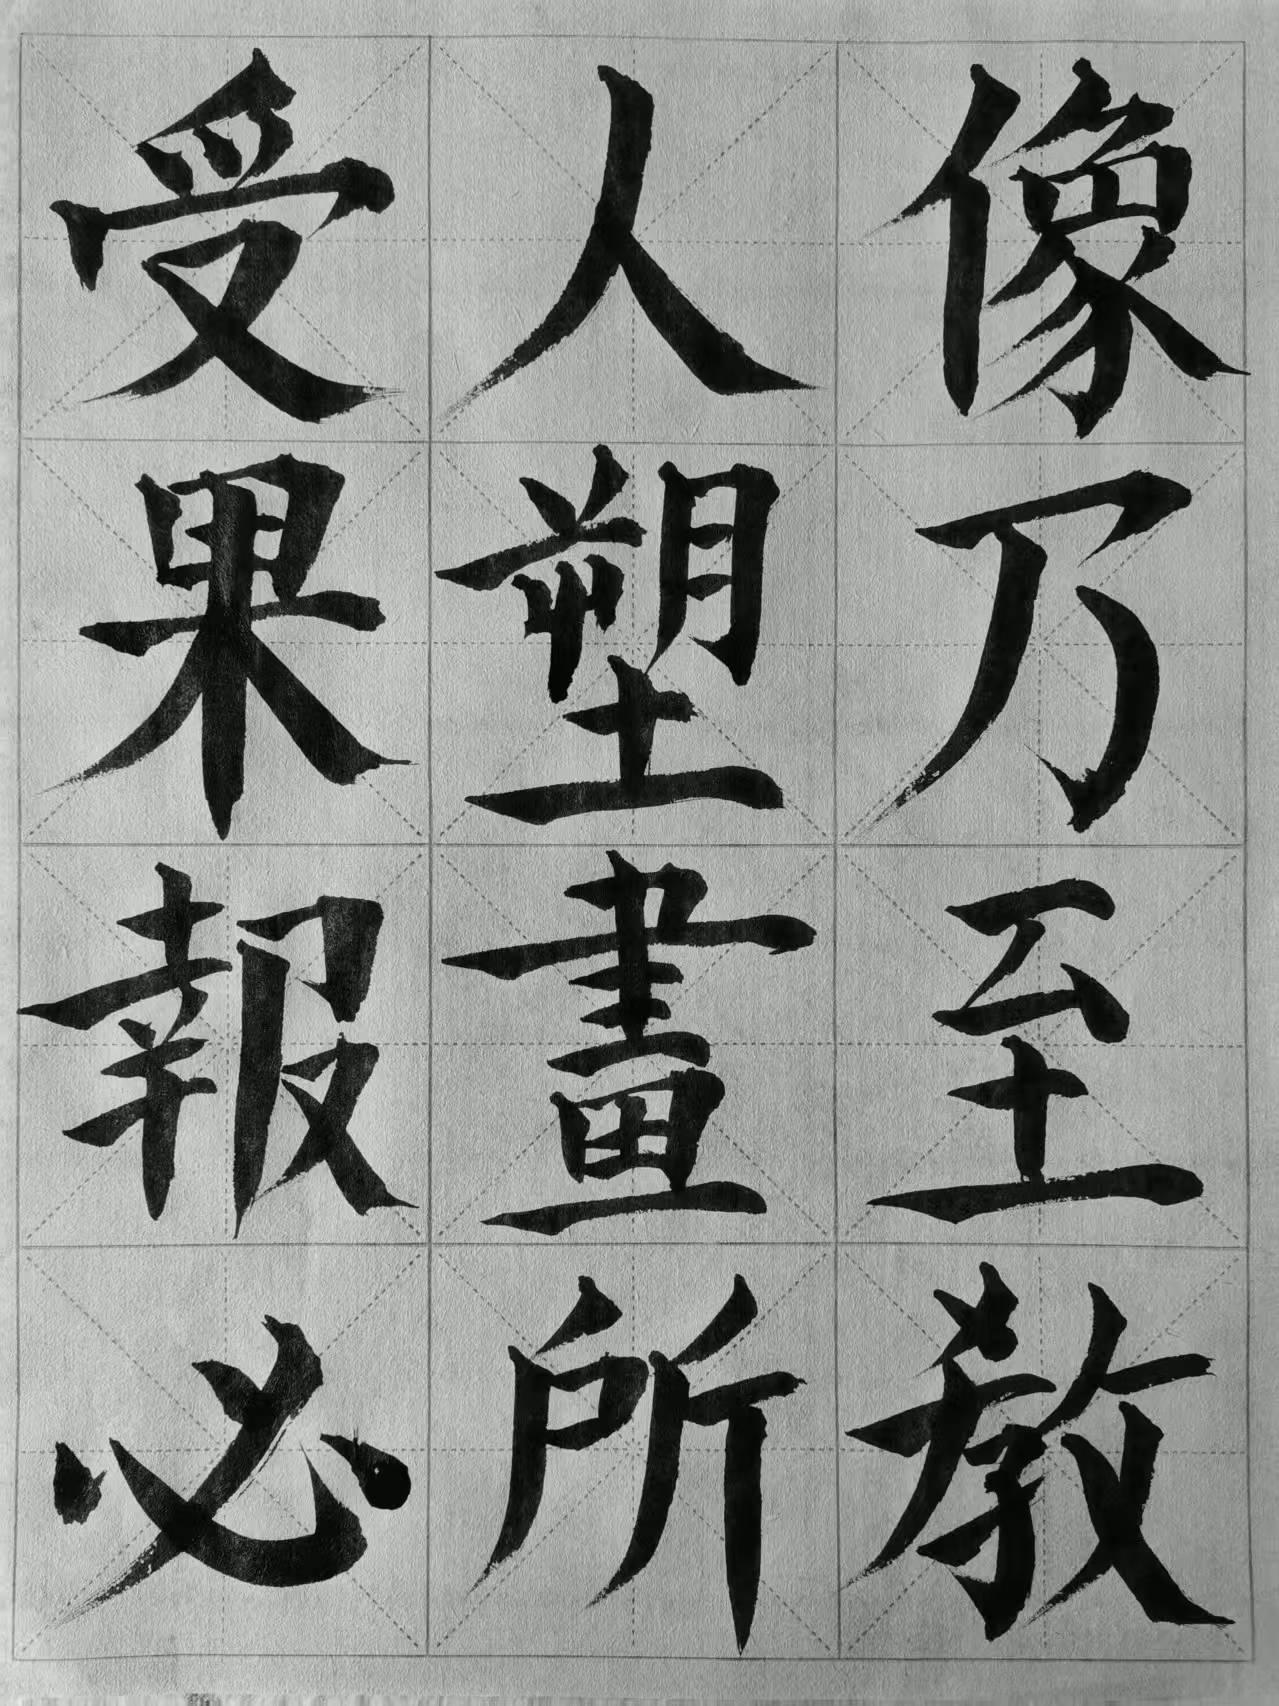 像乃至教
人塑畫所
受果報必